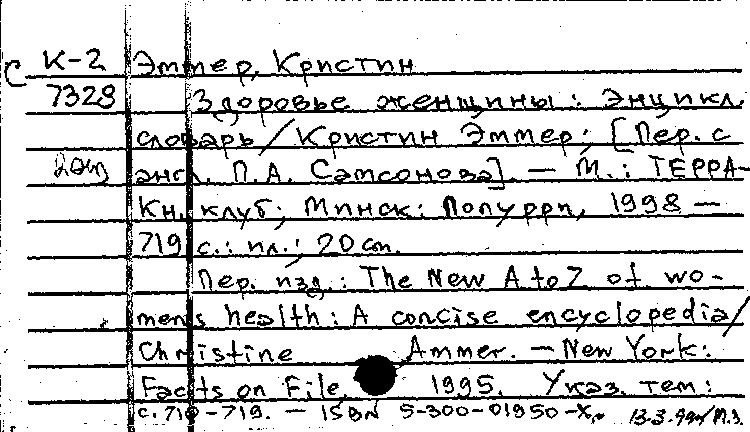 С К-2 Эммер, Кристин
7328 Здоровье женщины: Энцикл.
словарь / Кристин Эммер; [Пер. с
англ. П.А. Самсонова]. — М.: ТЕРРА-
Кн. клуб; Минск: Попурри, 1998 —
719 с.: ил.; 20 см.
Пер. изд.: The New A to Z of wo-
mens health: A concise encyclopedia /
Christine Ammer. — New York:
Facts on File, 1995. Указ. тем:
с. 710-719. — ISBN 5-300-01950-X.